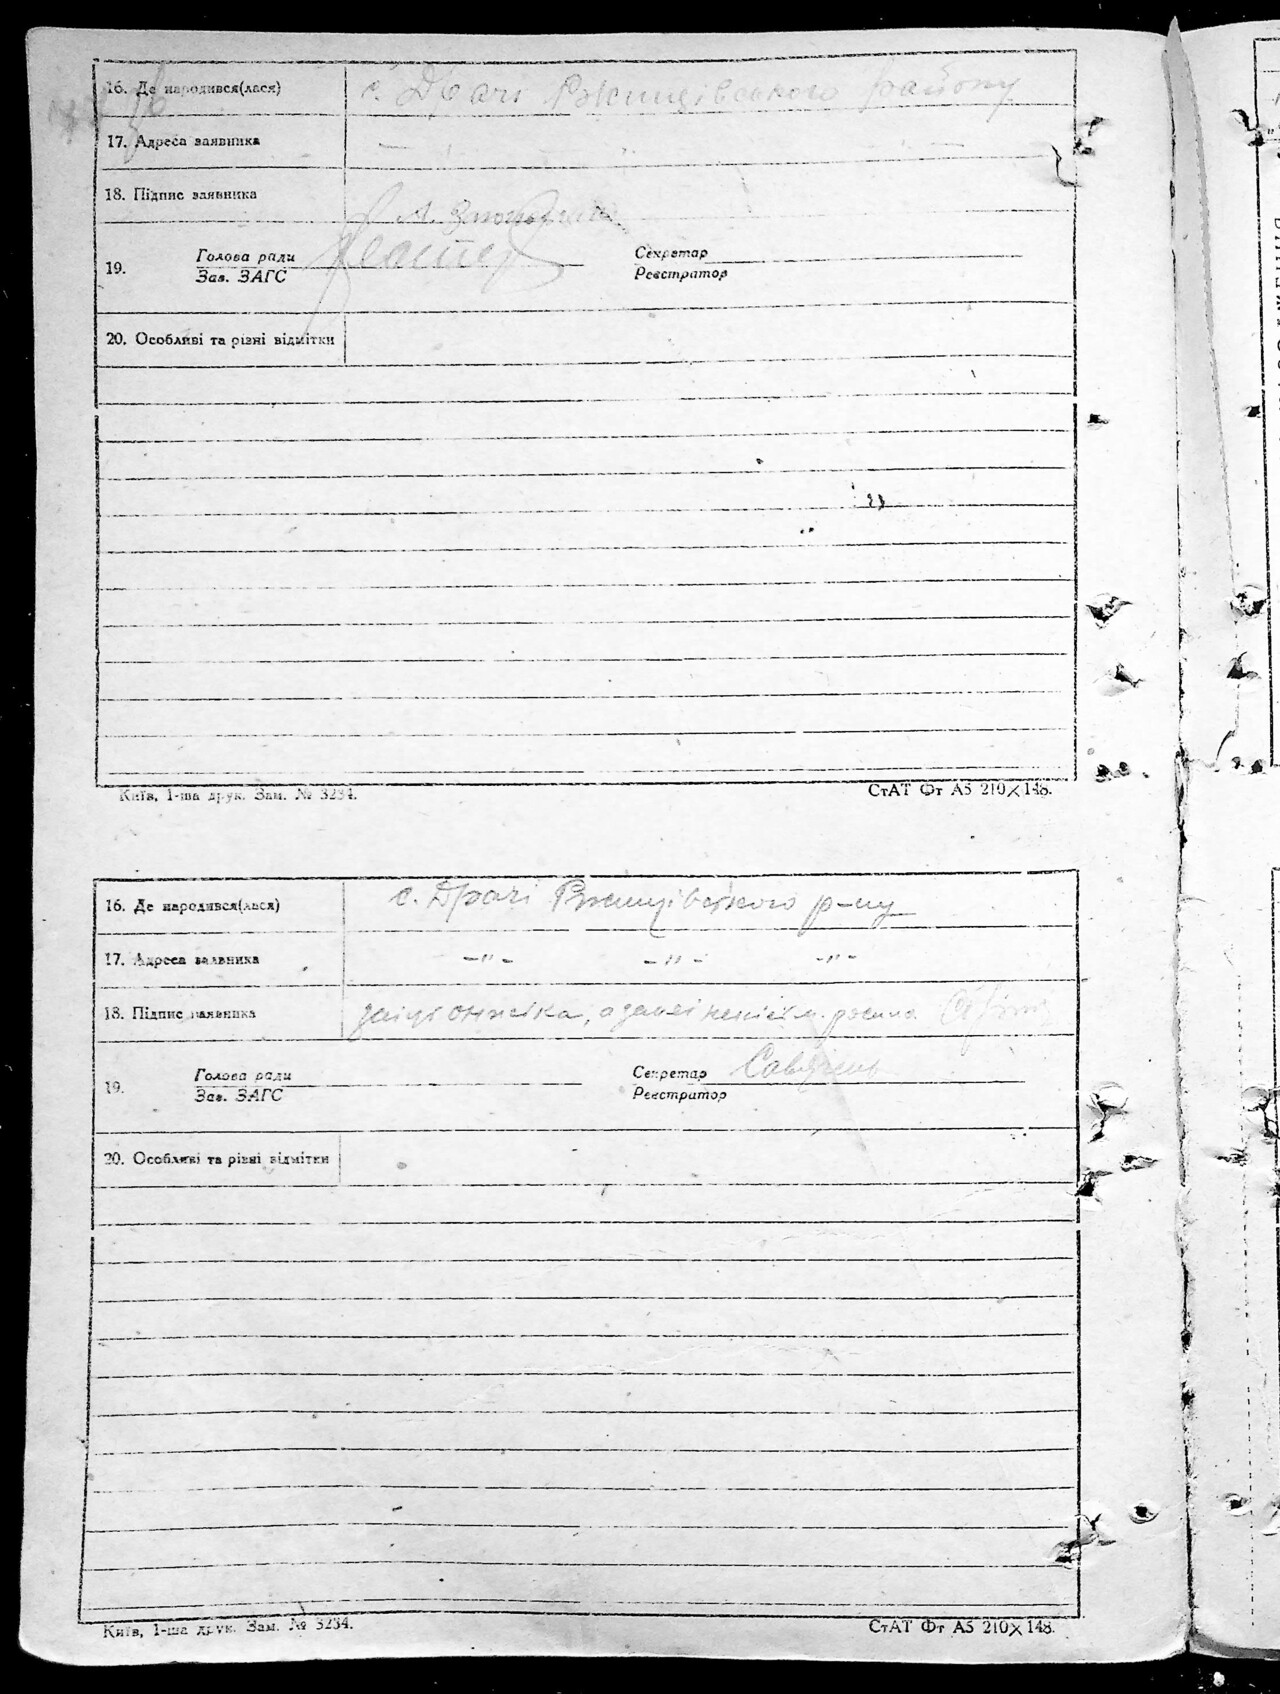 16. Де народився(лася) с. Драчі Ржищівського району
17. Адреса заявника —
18. Підпис заявника
19. Голова ради Секретар
Зав. ЗАГС Реєстратор
20. Особливі та різні відмітки
Київ, 1-ша друк. Зам. № 3234. СтАТ Фт А5 210×148.
16. Де народився(лася) с. Драчі Ржищівського р-ну
17. Адреса заявника -"- -"- -"-
18. Підпис заявника
19. Голова ради Секретар
Зав. ЗАГС Реєстратор
20. Особливі та різні відмітки
Київ, 1-ша друк. Зам. № 3234. СтАТ Фт А5 210×148.